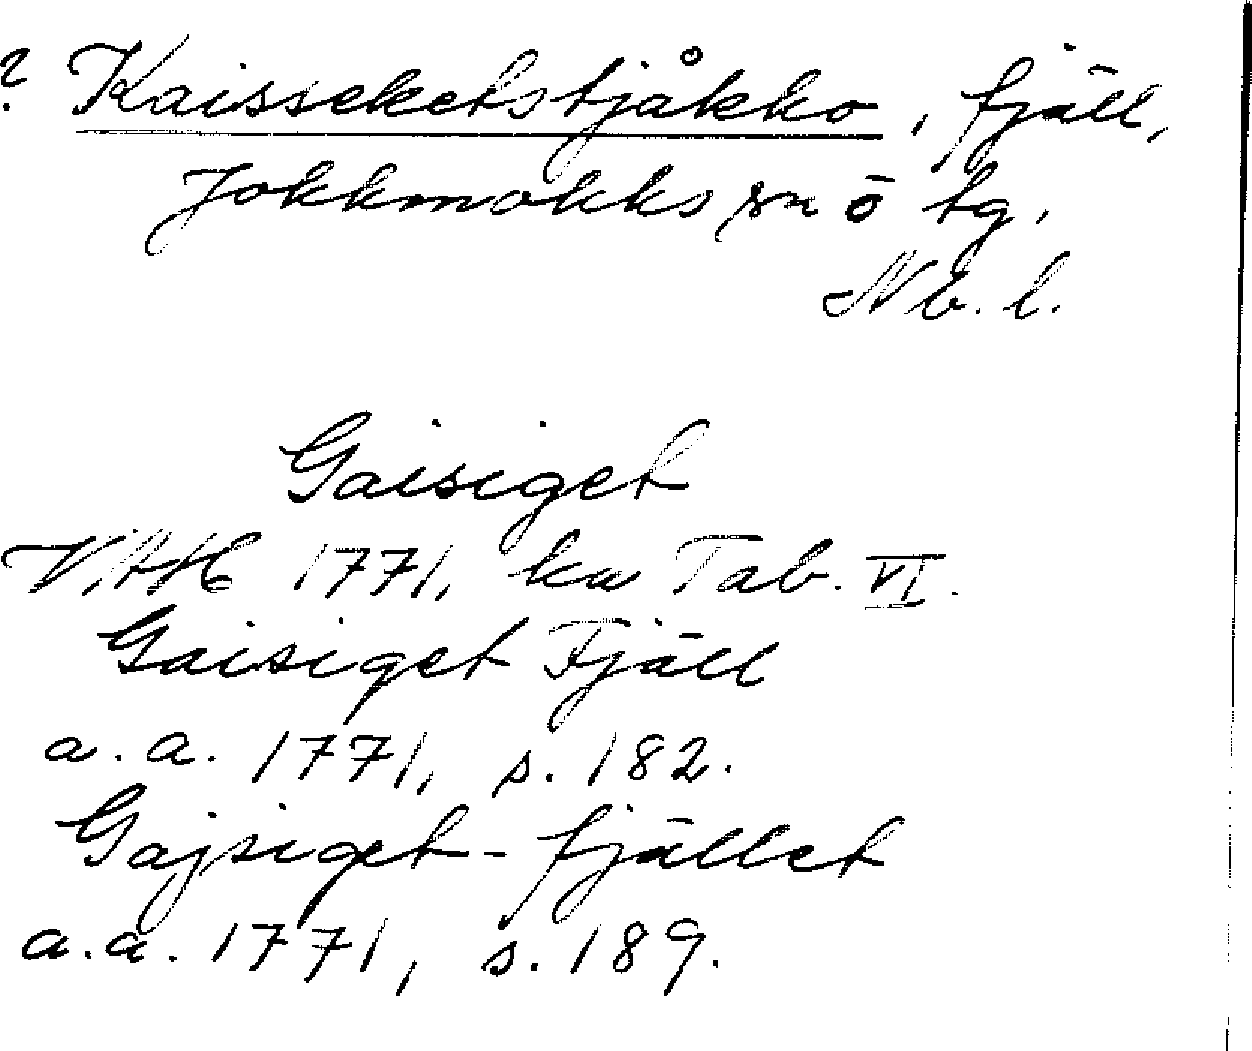 ? Kaisseketstjåkko, fjäll,
Jokkmokks sn o tg.
Nb. l.
Gaisiget
VAH 1771, ka Tab. VI.
Gaisiget Fjäll
a. a. 1771, s. 182.
Gajsiget-fjället
a. a. 1771, s. 189.